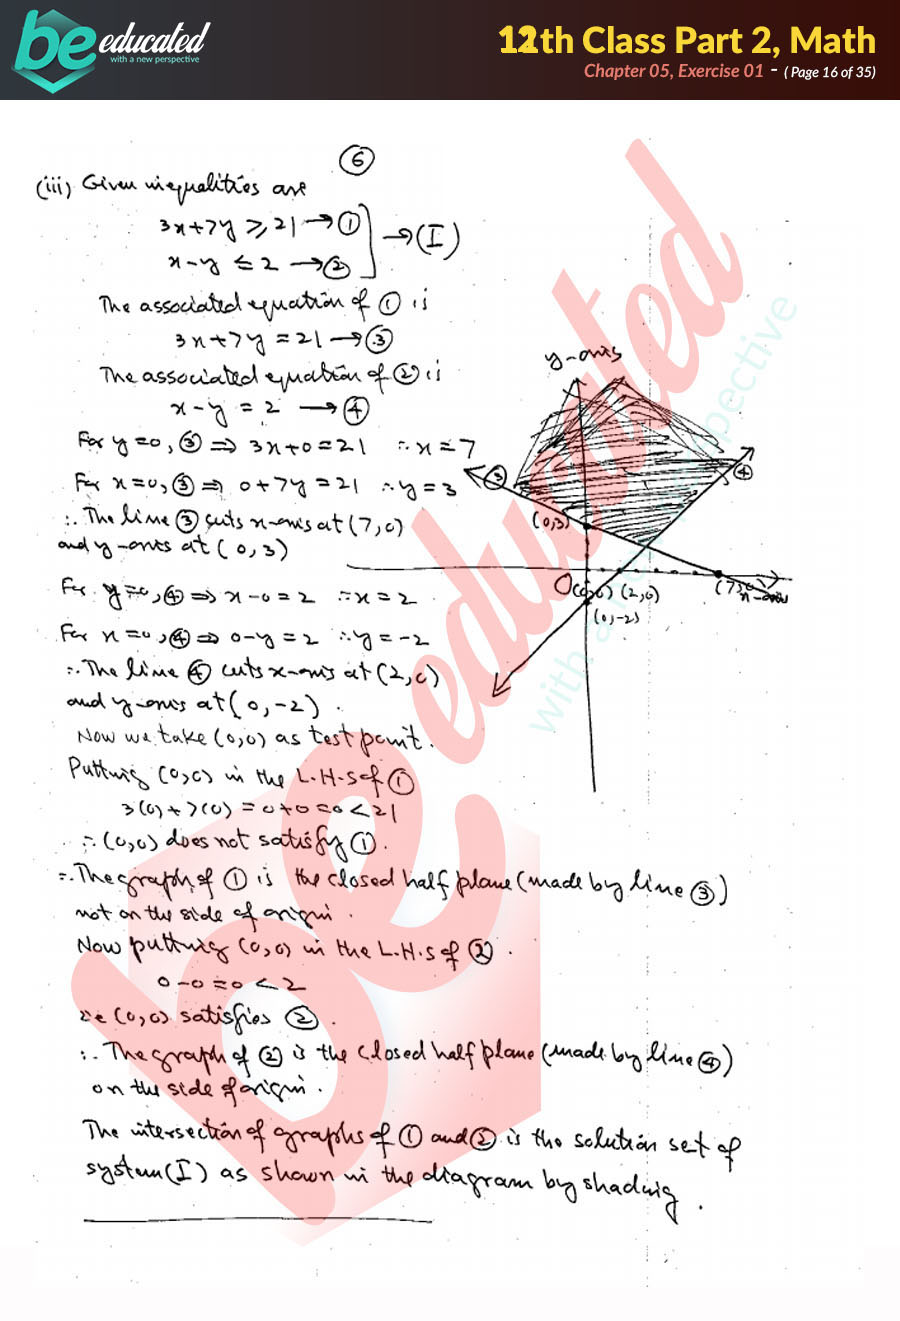 be educated
with a new perspective
12th Class Part 2, Math
Chapter 05, Exercise 01 - ( Page 16 of 35)
6
(iii) Given inequalities are
3x+7y ≥ 21 → ① → (I)
x-y ≤ 2 → ②
The associated equation of ① is
3x+7y = 21 → ③
The associated equation of ② is
x-y = 2 → ④
For y=0, ③ ⇒ 3x+0=21 ∴ x=7
For x=0, ③ ⇒ 0+7y=21 ∴ y=3
∴ The line ③ cuts x-axis at (7,0)
and y-axis at (0,3)
For y=0, ④ ⇒ x-0=2 ∴ x=2
For x=0, ④ ⇒ 0-y=2 ∴ y=-2
∴ The line ④ cuts x-axis at (2,0)
and y-axis at (0,-2).
Now we take (0,0) as test point.
Putting (0,0) in the L.H.S of ①
3(0)+7(0) = 0+0=0<21
∴ (0,0) does not satisfy ①.
∴ The graph of ① is the closed half plane (made by line ③)
not on the side of origin.
Now putting (0,0) in the L.H.S of ②.
0-0=0<2
i.e (0,0) satisfies ②.
∴ The graph of ② is the closed half plane (made by line ④)
on the side of origin.
The intersection of graphs of ① and ② is the solution set of
system (I) as shown in the diagram by shading.
y-axis
③
④
(0,3)
O(0,0) (2,0)
(7,0)
x-axis
(0,-2)
be educated
with a new perspective